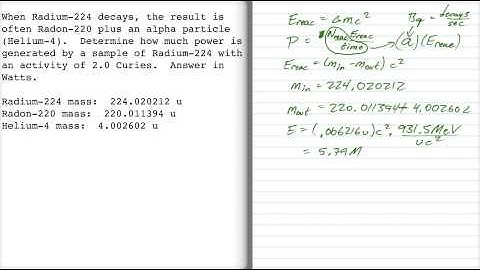 When Radium-224 decays, the result is
often Radon-220 plus an alpha particle
(Helium-4). Determine how much power is
generated by a sample of Radium-224 with
an activity of 2.0 Curies. Answer in
Watts.
Radium-224 mass: 224.020212 u
Radon-220 mass: 220.011394 u
Helium-4 mass: 4.002602 u
Ereac = Δmc² Bq = decays/sec
P = Nreac Ereac/time → (a)(Ereac)
Ereac = (min - mout) c²
min = 224.020212
mout = 220.011394 + 4.002602
E = (.006216u)c² · 931.5 MeV/uc²
= 5.79 M